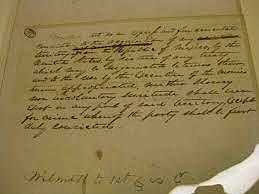 Provided that as an express and fundamental
condition to the acquisition of any
territory from the Republic of Mexico, by the
United States by virtue of any treaty
which may be negotiated between them
and to the use by the Executive of the moneys
herein appropriated, neither slavery
nor involuntary servitude shall ever
exist in any part of said territory except
for crime whereof the party shall first
be duly convicted
Wilmot